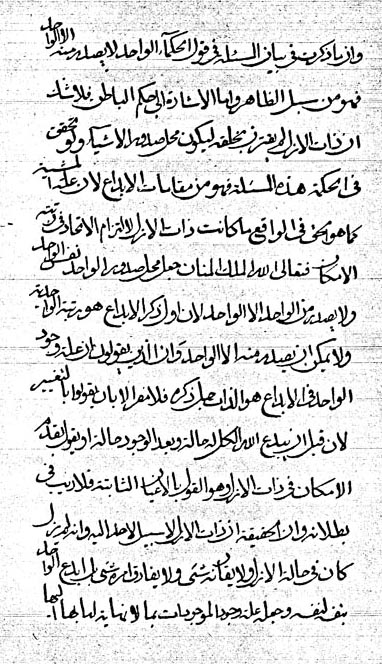 وان ما ذكرت في بيان المسئلة في قول الحكماء الواحد لا يصدر منه الا الواحد
فهو من سبل الظاهر واما الاشارة الى حكم الباطن فلا شك
ان ذات الازل لم يقترن بخلقه ليكون محل صدور الاشياء ولو تحقق
في الحكمة هذه المسئلة فهو من مقامات الابداع لان علية المشية
كما هو الحق في الواقع ما كانت ذات الازل لالتزام الاتحاد في رتبة
الامكان فتعالى الله الملك المنان جعل محل صدور الواحد نفس الواحد
ولا يصدر من الواحد الا الواحد لان اول ذكر الابداع هو رتبة الواحدية
ولا يمكن ان يصدر منه الا الواحد وان الذين يقولون ان علة وجود
الواحد في الابداع هو الذات جل ذكره فلا مفر الا بان يقولوا بالتغيير
لان قبل ان يبدع الله الكل له حالة وبعد الوجود حالة او يقول بقدم
الامكان في ذات الازل وهو القول بالاعيان الثابتة فلا ريب في
بطلانه وان الحقيقة ان ذات الازل لا سبيل لاحد اليه وانه لم يزل
كان في حالة الازل ولا يقارنه شئ ولا يفارق امره شئ بل ابدع الواحد
بنفسه لنفسه وجعله علة وجود الموجودات بما لا نهاية لها بها اليها